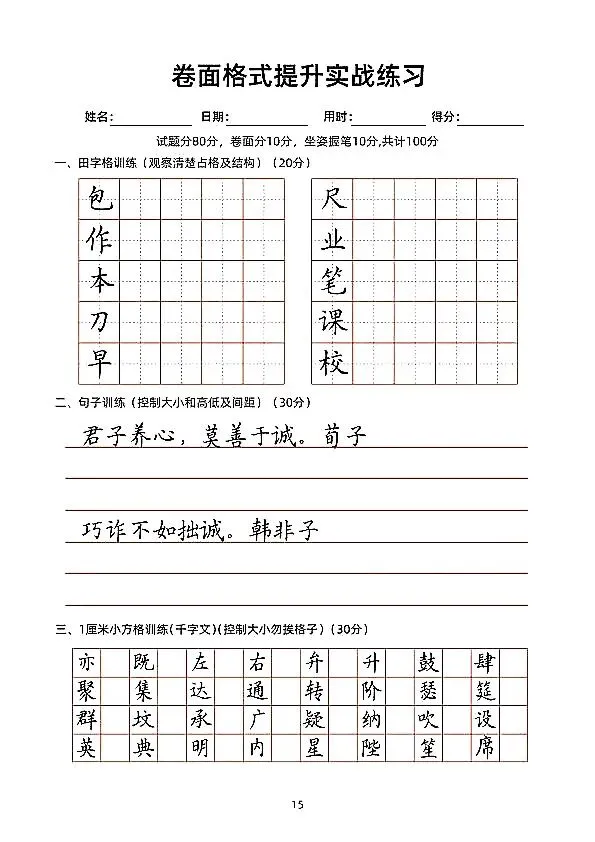 卷面格式提升实战练习
姓名： 日期： 用时： 得分：
试题分80分，卷面分10分，坐姿握笔10分,共计100分
一、田字格训练（观察清楚占格及结构）（20分）
包 尺
作 业
本 笔
刀 课
早 校
二、句子训练（控制大小和高低及间距）（30分）
君子养心，莫善于诚。荀子
巧诈不如拙诚。韩非子
三、1厘米小方格训练(千字文)(控制大小勿挨格子)（30分）
亦 既 左 右 弁 升 鼓 肆
聚 集 达 通 转 阶 瑟 筵
群 坟 承 广 疑 纳 吹 设
英 典 明 内 星 陛 笙 席
15